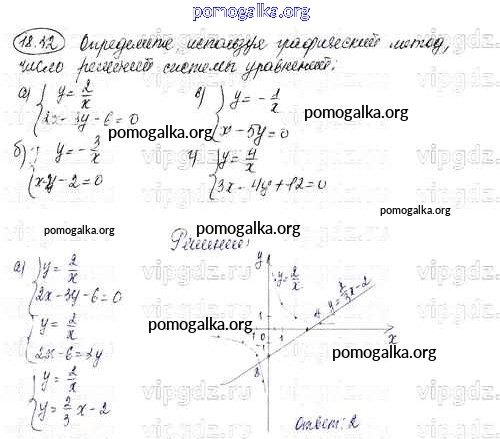 pomogalka.org
18.32 Определите, используя графический метод,
число решений системы уравнений:
а) { y = 2/x
2x - 3y - 6 = 0
в) { y = - 1/x
x - 5y = 0
pomogalka.org
б) { y = - 3/x
- 2 = 0
г) { y = 4/x
3x - 4y + 12 = 0
pomogalka.org
pomogalka.org
pomogalka.org
Решение:
а) { y = 2/x
2x - 3y - 6 = 0
{ y = 2/x
2x - 6 = 3y
{ y = 2/x
y = 2/3 x - 2
y
y = 2/x
y = 2/3 x - 2
1
-1 0 1
-1
x
pomogalka.org
pomogalka.org
pomogalka.org
Ответ: 2
vipgdz.ru